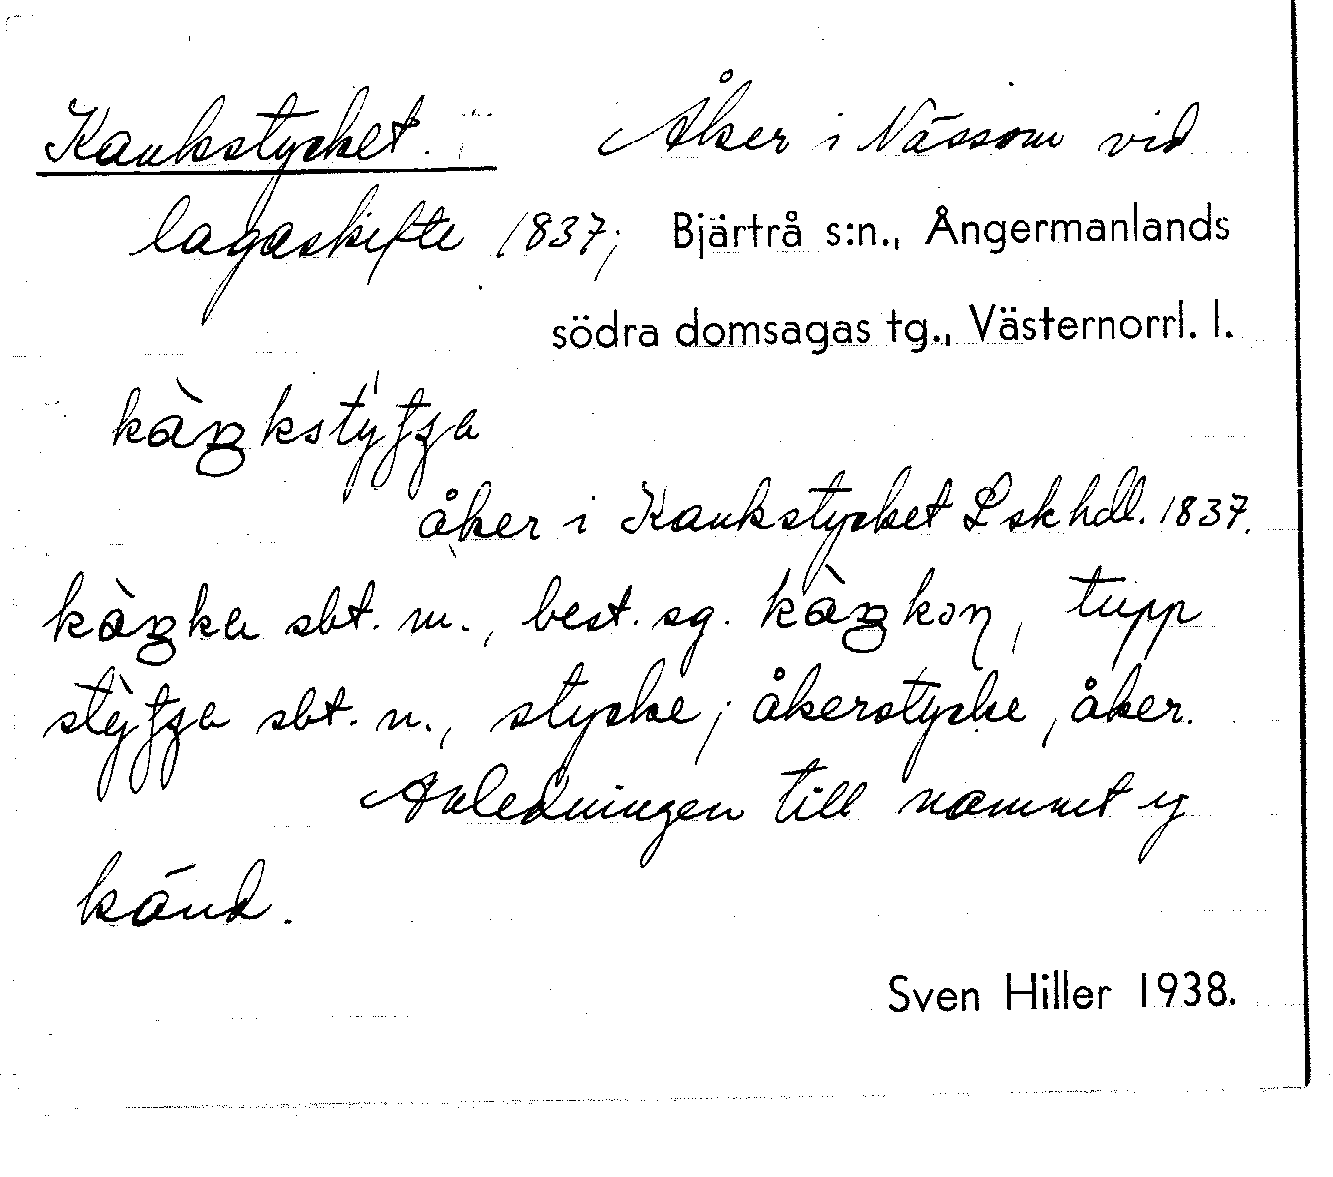 Kaukstycket. Åker i Nässom vid
lagaskifte 1837; Bjärtrå s:n., Ångermanlands
södra domsagas tg., Västernorrl. l.
åker i Kaukstycket L sk hdl. 1837.
sbt. m., best. sg. , tupp
sbt. n., stycke; åkerstycke, åker.
Anledningen till namnet ej
känd.
Sven Hiller 1938.